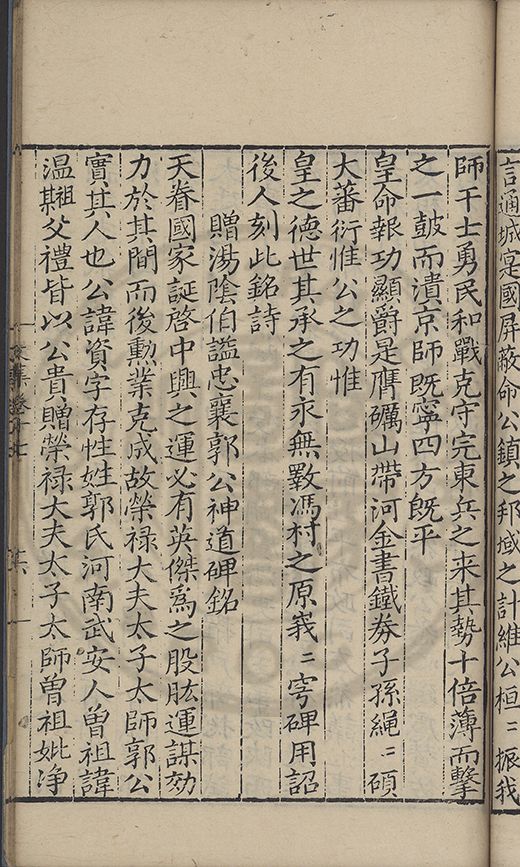 言通城寔國屏蔽命公鎮之邦域之計維公桓〻振我
師干士勇民和戰克守完東兵之来其勢十倍薄而擊
之一鼓而潰京師既寧四方既平
皇命報功顯爵是膺礪山帶河金書鐵券子孫繩〻碩
大蕃衍惟公之功惟
皇之德世其承之有永無斁馮村之原峩〻穹碑用詔
後人刻此銘詩
贈湯隂伯謚忠襄郭公神道碑銘
天眷國家誕啓中興之運必有英傑爲之股肱運謀効
力於其間而後勲業克成故榮禄大夫太子太師郭公
實其人也公諱資字存性姓郭氏河南武安人曽祖諱
温祖父禮皆以公貴贈榮禄大夫太子太師曽祖妣浄